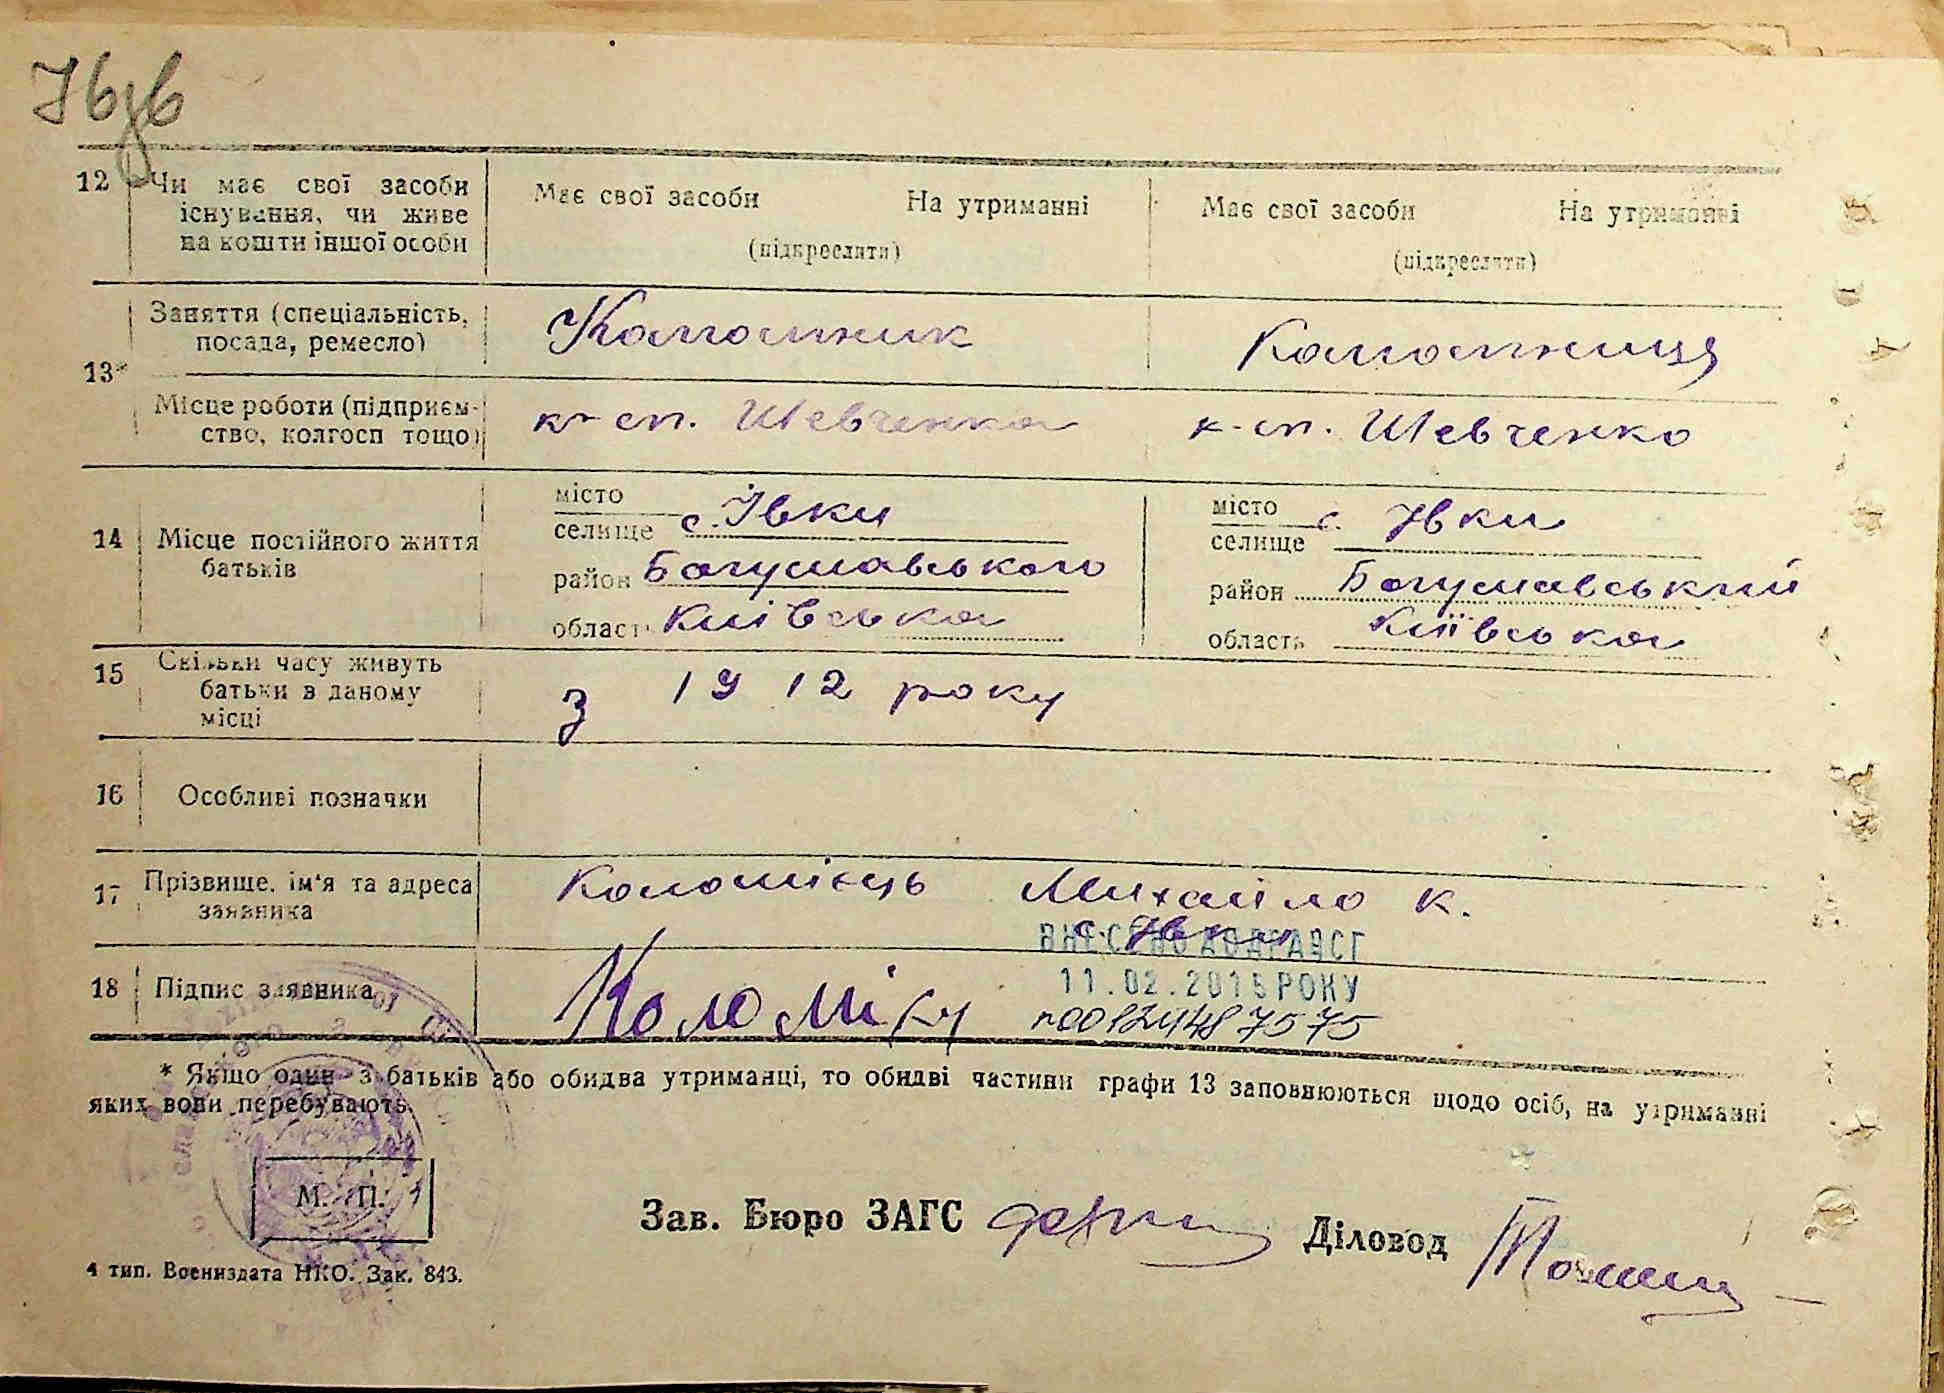 12 Чи має свої засоби
існування, чи живе
на кошти іншої особи
Має свої засоби На утриманні
(підкреслити)
Має свої засоби На утриманні
(підкреслити)
13*
Заняття (спеціальність,
посада, ремесло)
Колгоспник
Колгоспниця
Місце роботи (підприєм-
ство, колгосп тощо)
к-сп. Шевченка
к-сп. Шевченко
14 Місце постійного життя
батьків
місто
селище с. Івки
район Богуславського
область Київська
місто
селище с. Івки
район Богуславський
область Київська
15 Скільки часу живуть
батьки в даному
місці
з 1912 року
16 Особливі позначки
17 Прізвище, ім'я та адреса
заявника
Коломієць Михайло К.
с. Івки
ВНЕСЕНО ДО ДРАЦСГ
18 Підпис заявника
11.02.2015 РОКУ
* Якщо один з батьків або обидва утриманці, то обидві частини графи 13 заповнюються щодо осіб, на утриманні
яких вони перебувають.
М. П.
Зав. Бюро ЗАГС
Діловод
4 тип. Воениздата НКО. Зак. 843.